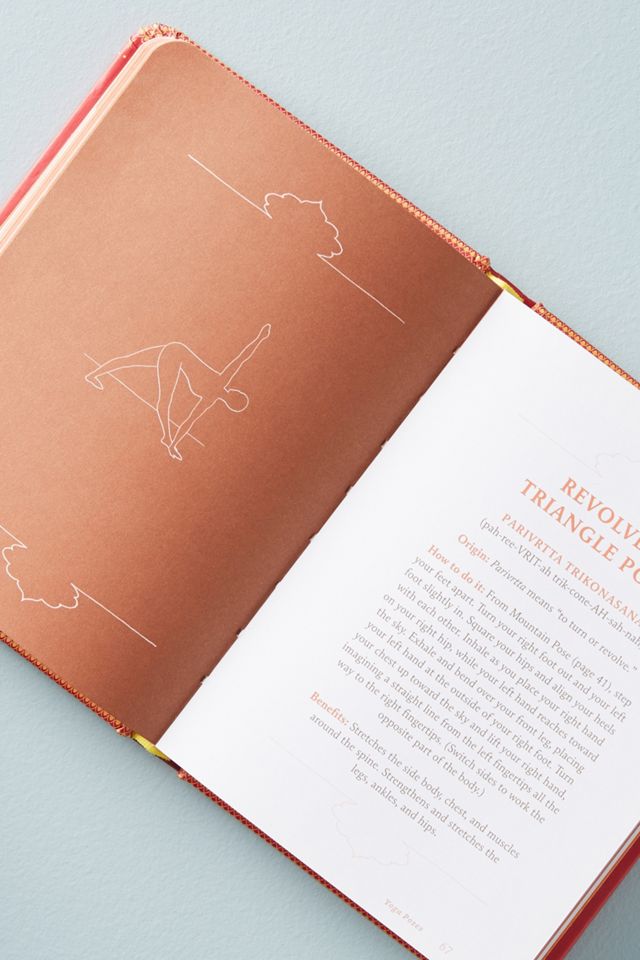 REVOLVE
TRIANGLE PO
PARIVRTTA TRIKONASANA
(pah-ree-VRIT-ah trik-cone-AH-sah-na
Origin: Parivrtta means "to turn or revolve.
How to do it: From Mountain Pose (page 41), step
your feet apart. Turn your right foot out and your left
foot slightly in. Square your hips and align your heels
with each other. Inhale as you place your right hand
on your right hip, while your left hand reaches toward
the sky. Exhale and bend over your front leg, placing
your left hand at the outside of your right foot. Turn
your chest up toward the sky and lift your right hand,
imagining a straight line from the left fingertips all the
way to the right fingertips. (Switch sides to work the
opposite part of the body.)
Benefits: Stretches the side body, chest, and muscles
around the spine. Strengthens and stretches the
legs, ankles, and hips.
Yoga Poses 67